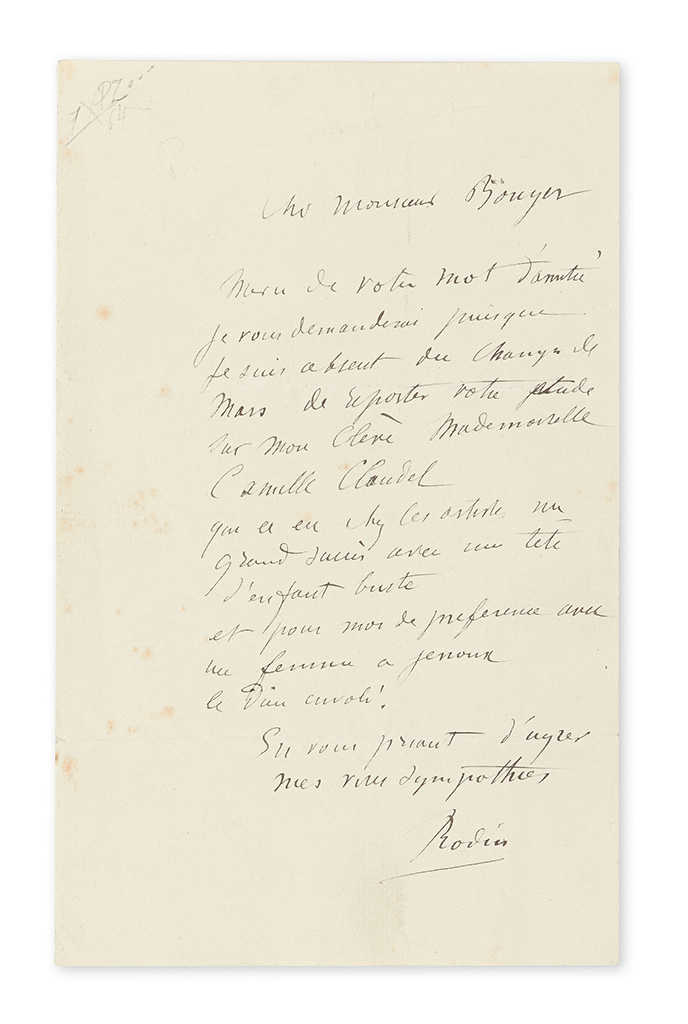 Cher Monsieur Bouyer
Merci de votre mot d'amitié
je vous demanderai puisque
je suis absent du Champs de
Mars de reporter votre etude
sur mon Elève Mademoiselle
Camille Claudel
qui a eu chez les artistes un
grand succès avec une tete
d'enfant buste
et pour moi de preference avec
une femme a genoux
le Dieu envolé!
En vous priant d'agreer
mes vives sympathies
Rodin